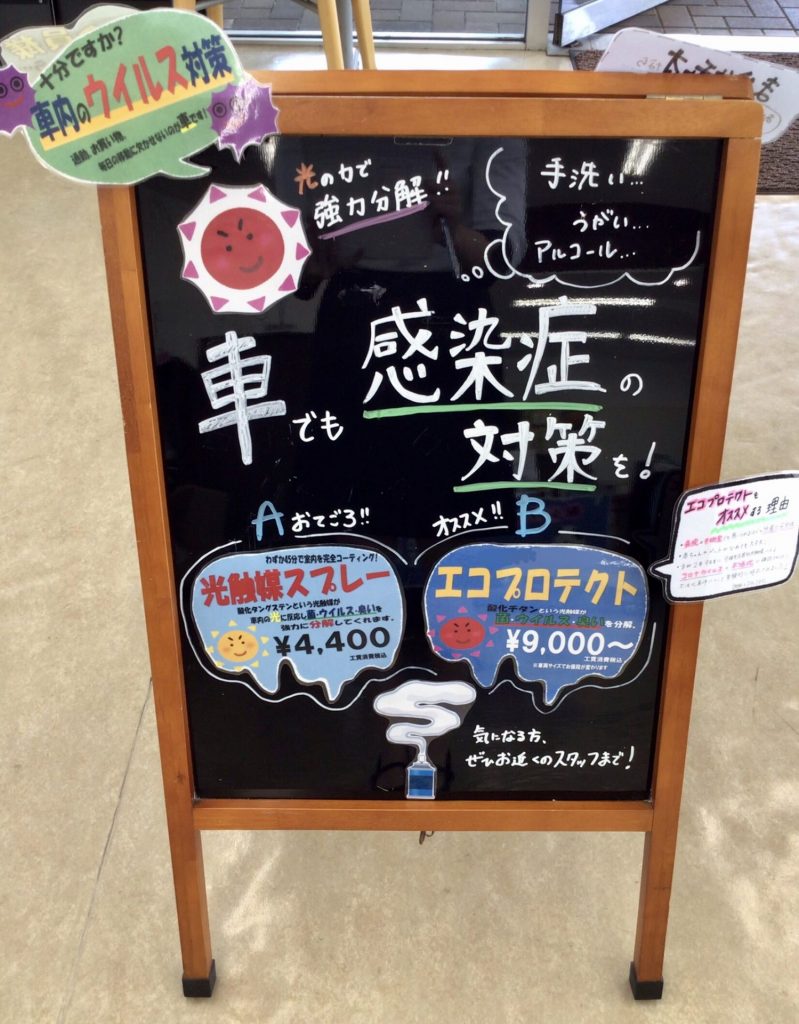 十分ですか?
車内のウイルス対策
通勤、お買い物、
毎日の移動に欠かせないのが車です!
光の力で
強力分解!!
手洗い...
うがい...
アルコール...
車でも感染症の
対策を!
A おてごろ!!
わずか45分で室内を完全コーティング!
光触媒スプレー
酸化タングステンという光触媒が
車内の光に反応し菌・ウイルス・臭いを
強力に分解してくれます。
¥4,400
工賃消費税込
オススメ!! B
エコプロテクト
酸化チタンという光触媒が
菌・ウイルス・臭いを分解。
¥9,000〜
工賃消費税込
※車両サイズでお値段が変わります
エコプロテクトを
オススメする理由
気になる方、
ぜひお近くのスタッフまで!